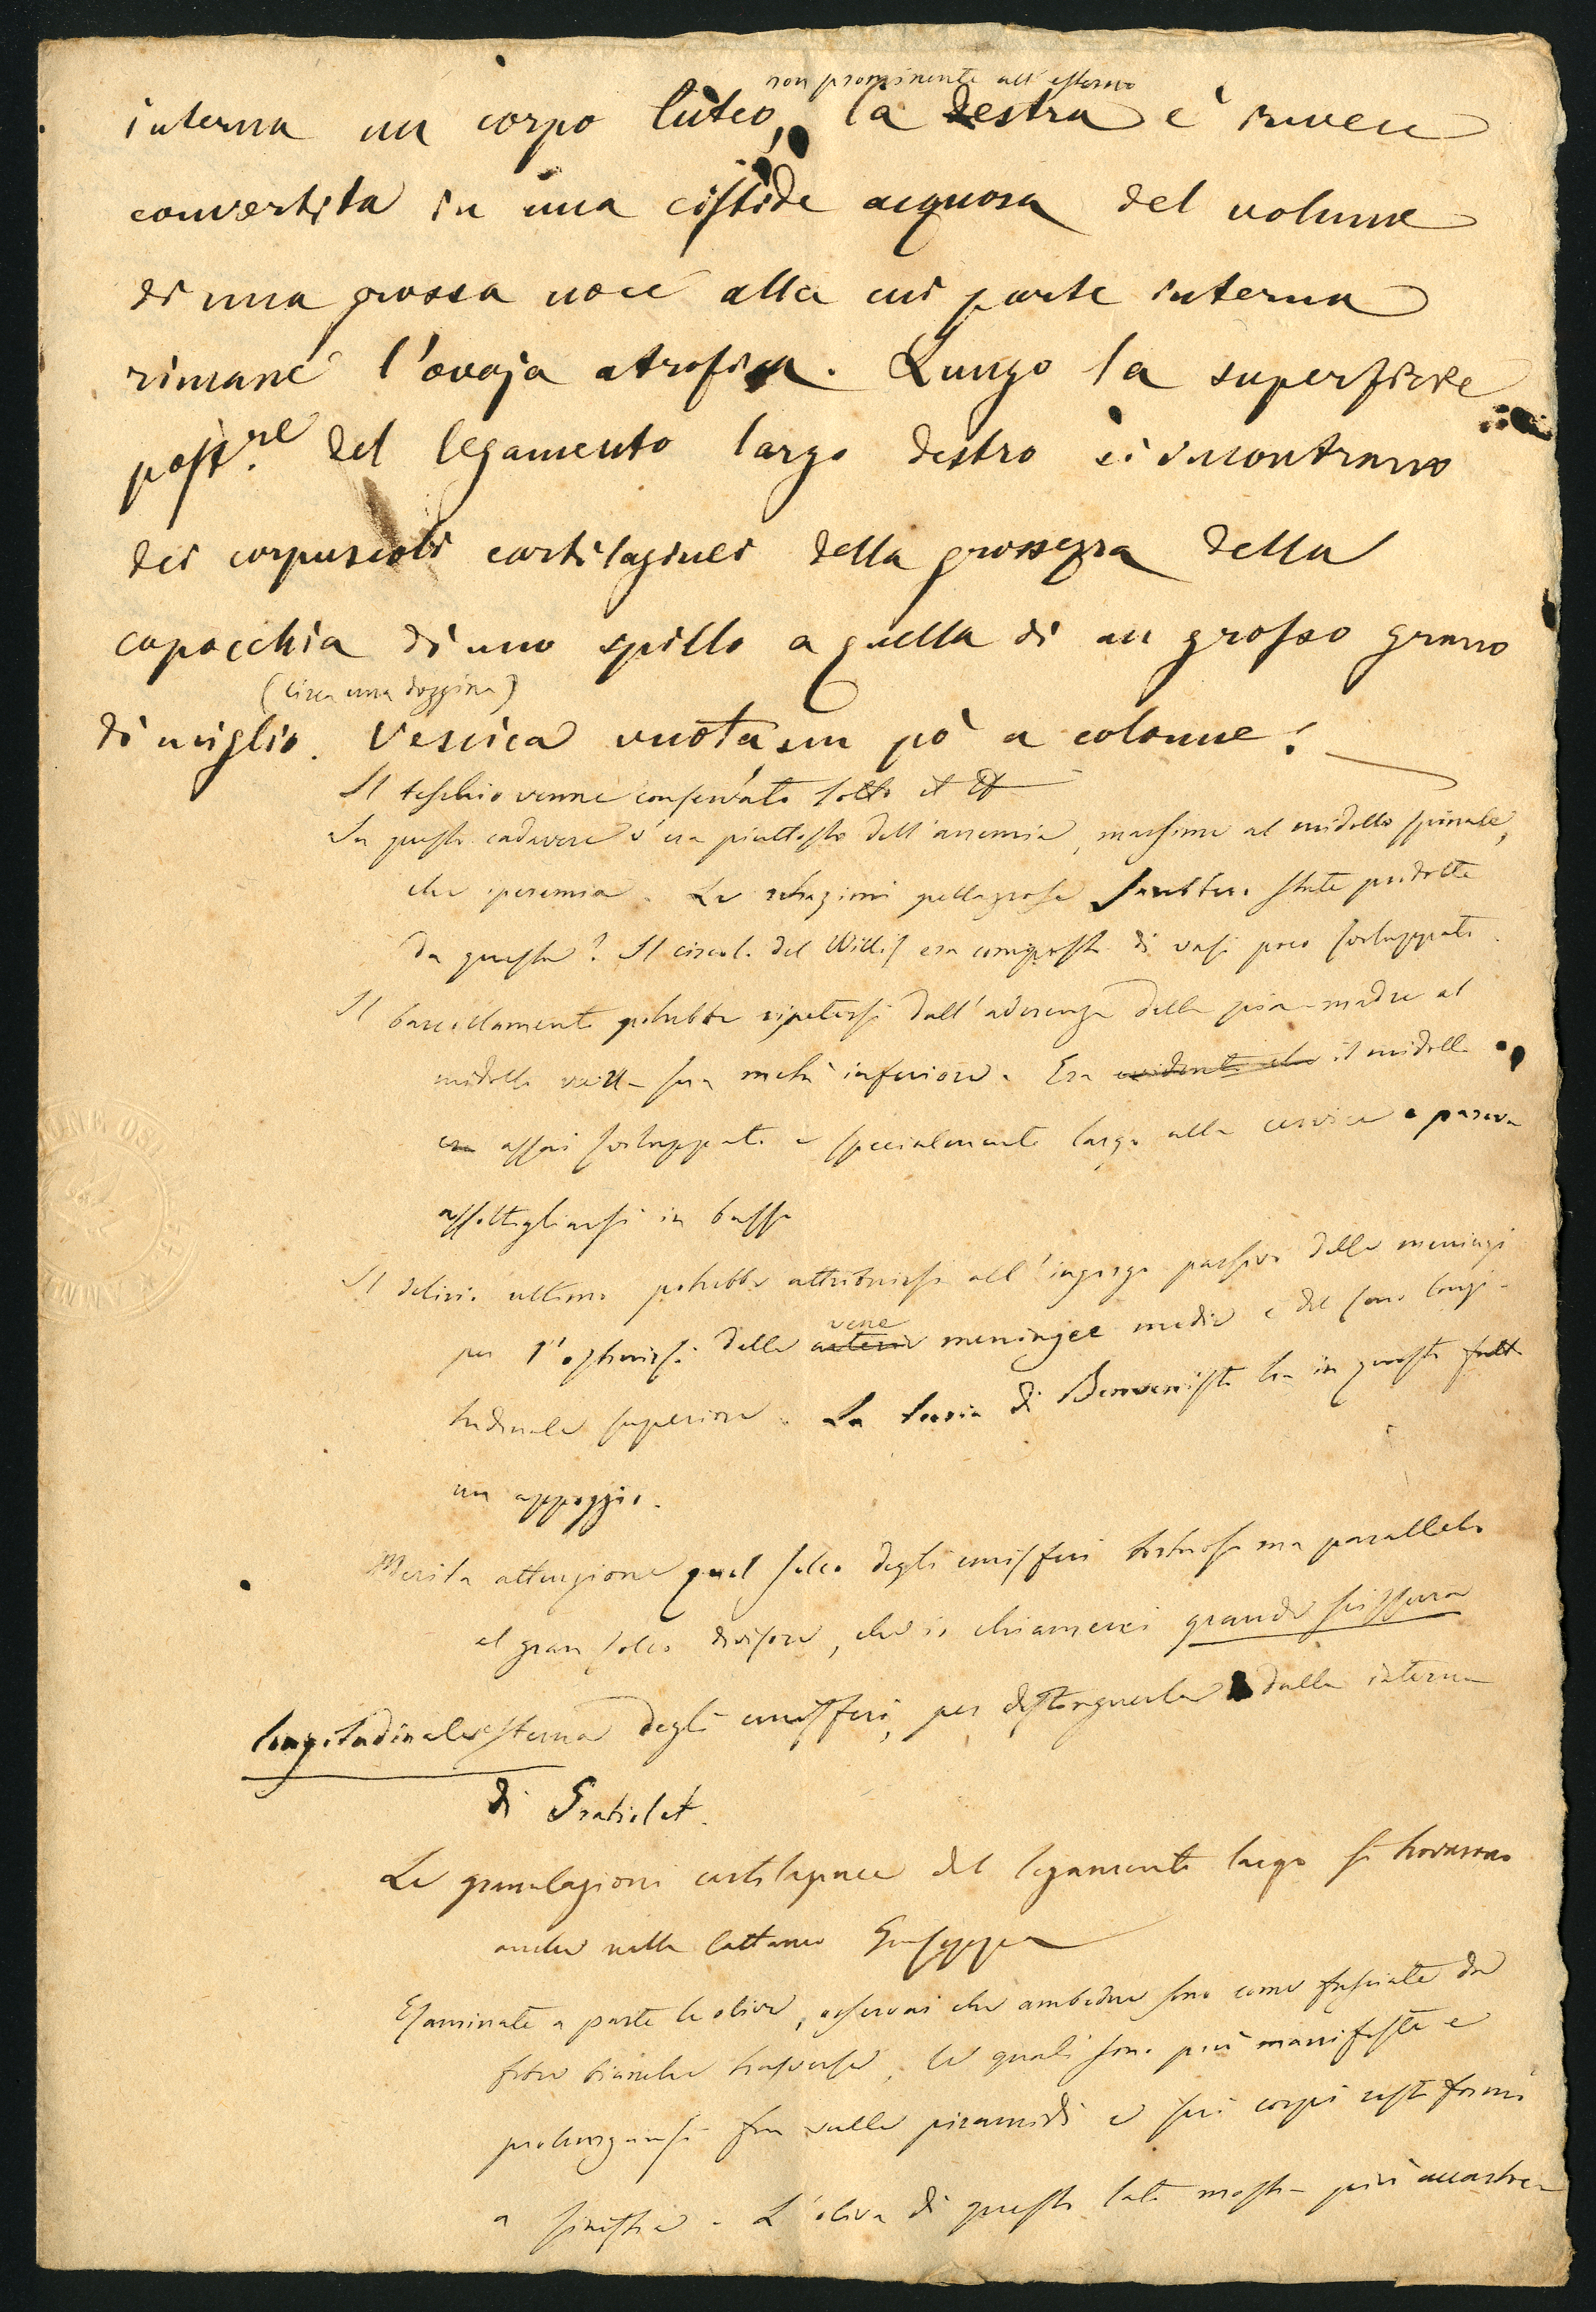 non prominente all'esterno
interna un corpo luteo, la destra è invece
convertita in una cistide acquosa del volume
di una grossa noce alla cui parte interna
rimane l'ovaja atrofica. Lungo la superficie
post.re del legamento largo destro si incontrano
dei corpuscoli cartilaginei della grossezza della
capocchia di uno spillo a quella di un grosso grano
(circa una dozzina)
di miglio. Vescica vuota, un pò a colonne.
Il teschio venne conservato sotto il N
In questo cadavere v'era piuttosto dell'anemia, massime al midollo spinale,
che iperemia. Le alterazioni pellagrose sarebbero state prodotte
da questa? Il circol. del Willis era composto di vasi poco sviluppati.
Il barcollamento potrebbe ripetersi dall'aderenza della pia-madre al
midollo nella sua metà inferiore. Era evidente che il midollo
era assai sviluppato e specialmente largo alla cervice e pareva
assottigliarsi in basso
Il delirio ultimo potrebbe attribuirsi all'ingorgo passivo delle meningi
vene
per l'ostruirsi delle arterie meningee medie e del seno longi-
tudinale superiore. La teoria di Benvenisti ha in questo fatto
un appoggio.
Merita attenzione quel solco degli emisferi tortuoso ma parallelo
al gran solco divisore, che io chiamerei grande scissura
longitudinale esterna degli emisferi, per distinguerla dalla interna
di Gratiolet.
Le granulazioni cartilaginee del legamento largo si trovarono
anche nella Cattaneo Giuseppa
Esaminate a parte le olive, osservai che ambedue sono come fasciate da
fibre bianche trasverse, le quali sono più manifeste e
prolungansi fin sulle piramidi e sui corpi restiformi
a sinistra. L'oliva di questo lato mostra più